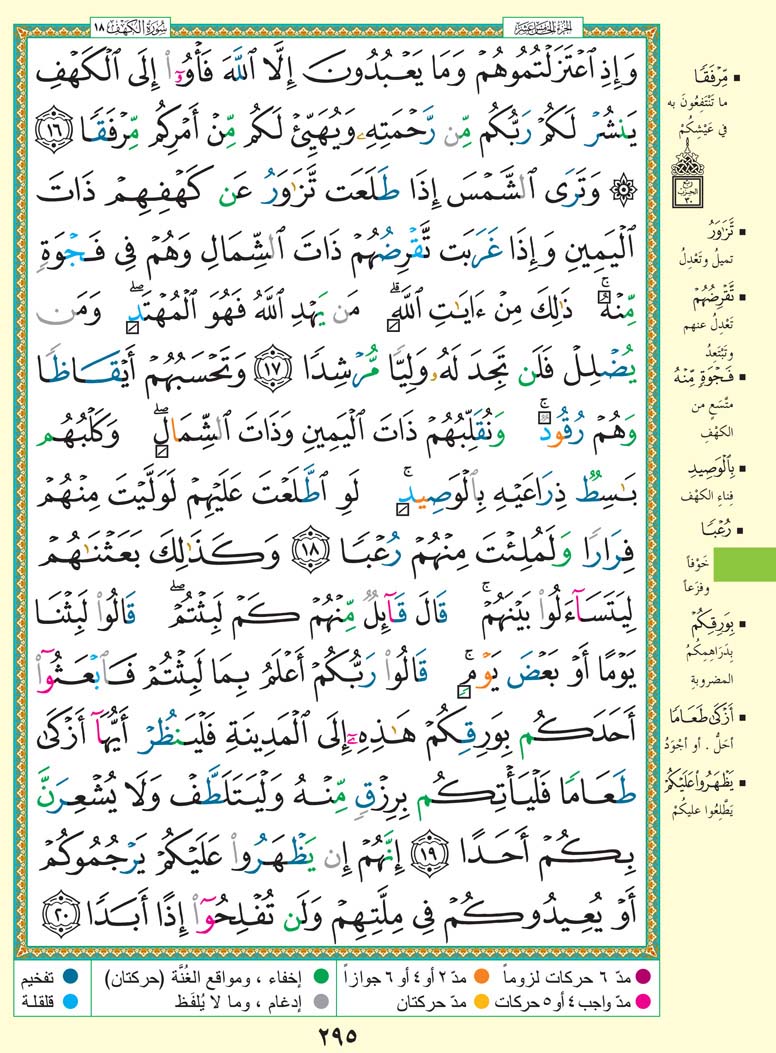 الجزء الخامس عشر
سورة الكهف ١٨
وَإِذِ ٱعْتَزَلْتُمُوهُمْ وَمَا يَعْبُدُونَ إِلَّا ٱللَّهَ فَأْوُۥٓا۟ إِلَى ٱلْكَهْفِ
يَنشُرْ لَكُمْ رَبُّكُم مِّن رَّحْمَتِهِۦ وَيُهَيِّئْ لَكُم مِّنْ أَمْرِكُم مِّرْفَقًا ١٦
۞ وَتَرَى ٱلشَّمْسَ إِذَا طَلَعَت تَّزَٰوَرُ عَن كَهْفِهِمْ ذَاتَ
ٱلْيَمِينِ وَإِذَا غَرَبَت تَّقْرِضُهُمْ ذَاتَ ٱلشِّمَالِ وَهُمْ فِى فَجْوَةٍ
مِّنْهُ ۚ ذَٰلِكَ مِنْ ءَايَٰتِ ٱللَّهِ ۗ مَن يَهْدِ ٱللَّهُ فَهُوَ ٱلْمُهْتَدِ ۖ وَمَن
يُضْلِلْ فَلَن تَجِدَ لَهُۥ وَلِيًّا مُّرْشِدًا ١٧ وَتَحْسَبُهُمْ أَيْقَاظًا
وَهُمْ رُقُودٌ ۚ وَنُقَلِّبُهُمْ ذَاتَ ٱلْيَمِينِ وَذَاتَ ٱلشِّمَالِ ۖ وَكَلْبُهُم
بَٰسِطٌ ذِرَاعَيْهِ بِٱلْوَصِيدِ ۚ لَوِ ٱطَّلَعْتَ عَلَيْهِمْ لَوَلَّيْتَ مِنْهُمْ
فِرَارًا وَلَمُلِئْتَ مِنْهُمْ رُعْبًا ١٨ وَكَذَٰلِكَ بَعَثْنَٰهُمْ
لِيَتَسَآءَلُوا۟ بَيْنَهُمْ ۚ قَالَ قَآئِلٌ مِّنْهُمْ كَمْ لَبِثْتُمْ ۖ قَالُوا۟ لَبِثْنَا
يَوْمًا أَوْ بَعْضَ يَوْمٍ ۚ قَالُوا۟ رَبُّكُمْ أَعْلَمُ بِمَا لَبِثْتُمْ فَٱبْعَثُوٓا۟
أَحَدَكُم بِوَرِقِكُمْ هَٰذِهِۦٓ إِلَى ٱلْمَدِينَةِ فَلْيَنظُرْ أَيُّهَآ أَزْكَىٰ
طَعَامًا فَلْيَأْتِكُم بِرِزْقٍ مِّنْهُ وَلْيَتَلَطَّفْ وَلَا يُشْعِرَنَّ
بِكُمْ أَحَدًا ١٩ إِنَّهُمْ إِن يَظْهَرُوا۟ عَلَيْكُمْ يَرْجُمُوكُمْ
أَوْ يُعِيدُوكُمْ فِى مِلَّتِهِمْ وَلَن تُفْلِحُوٓا۟ إِذًا أَبَدًا ٢٠
▪ مِّرْفَقًا
ما تَنْتَفِعُونَ به
في عَيْشِكُمْ
ربع
الحزب
٣٠
▪ تَّزَٰوَرُ
تميلُ وتَعْدِلُ
▪ تَّقْرِضُهُمْ
تَعْدِلُ عنهم
وتَبْتَعِدُ
▪ فَجْوَةٍ مِّنْهُ
متَّسَعٍ من
الكهْفِ
▪ بِٱلْوَصِيدِ
فِناءِ الكهْف
▪ رُعْبًا
خَوْفاً
وفزَعاً
▪ بِوَرِقِكُمْ
بِدَراهِمِكُمُ
المضروبةِ
▪ أَزْكَىٰ طَعَامًا
أحَلُّ . أو أجْوَدُ
▪ يَظْهَرُوا۟ عَلَيْكُمْ
يَطَّلِعُوا عليكُمْ
مدّ ٦ حركات لزوماً
مدّ ٢ أو ٤ أو ٦ جوازاً
إخفاء ، ومواقع الغُنَّة (حركتان)
تفخيم
مدّ واجب ٤ أو ٥ حركات
مدّ حركتان
إدغام ، وما لا يُلفَظ
قلقلة
٢٩٥